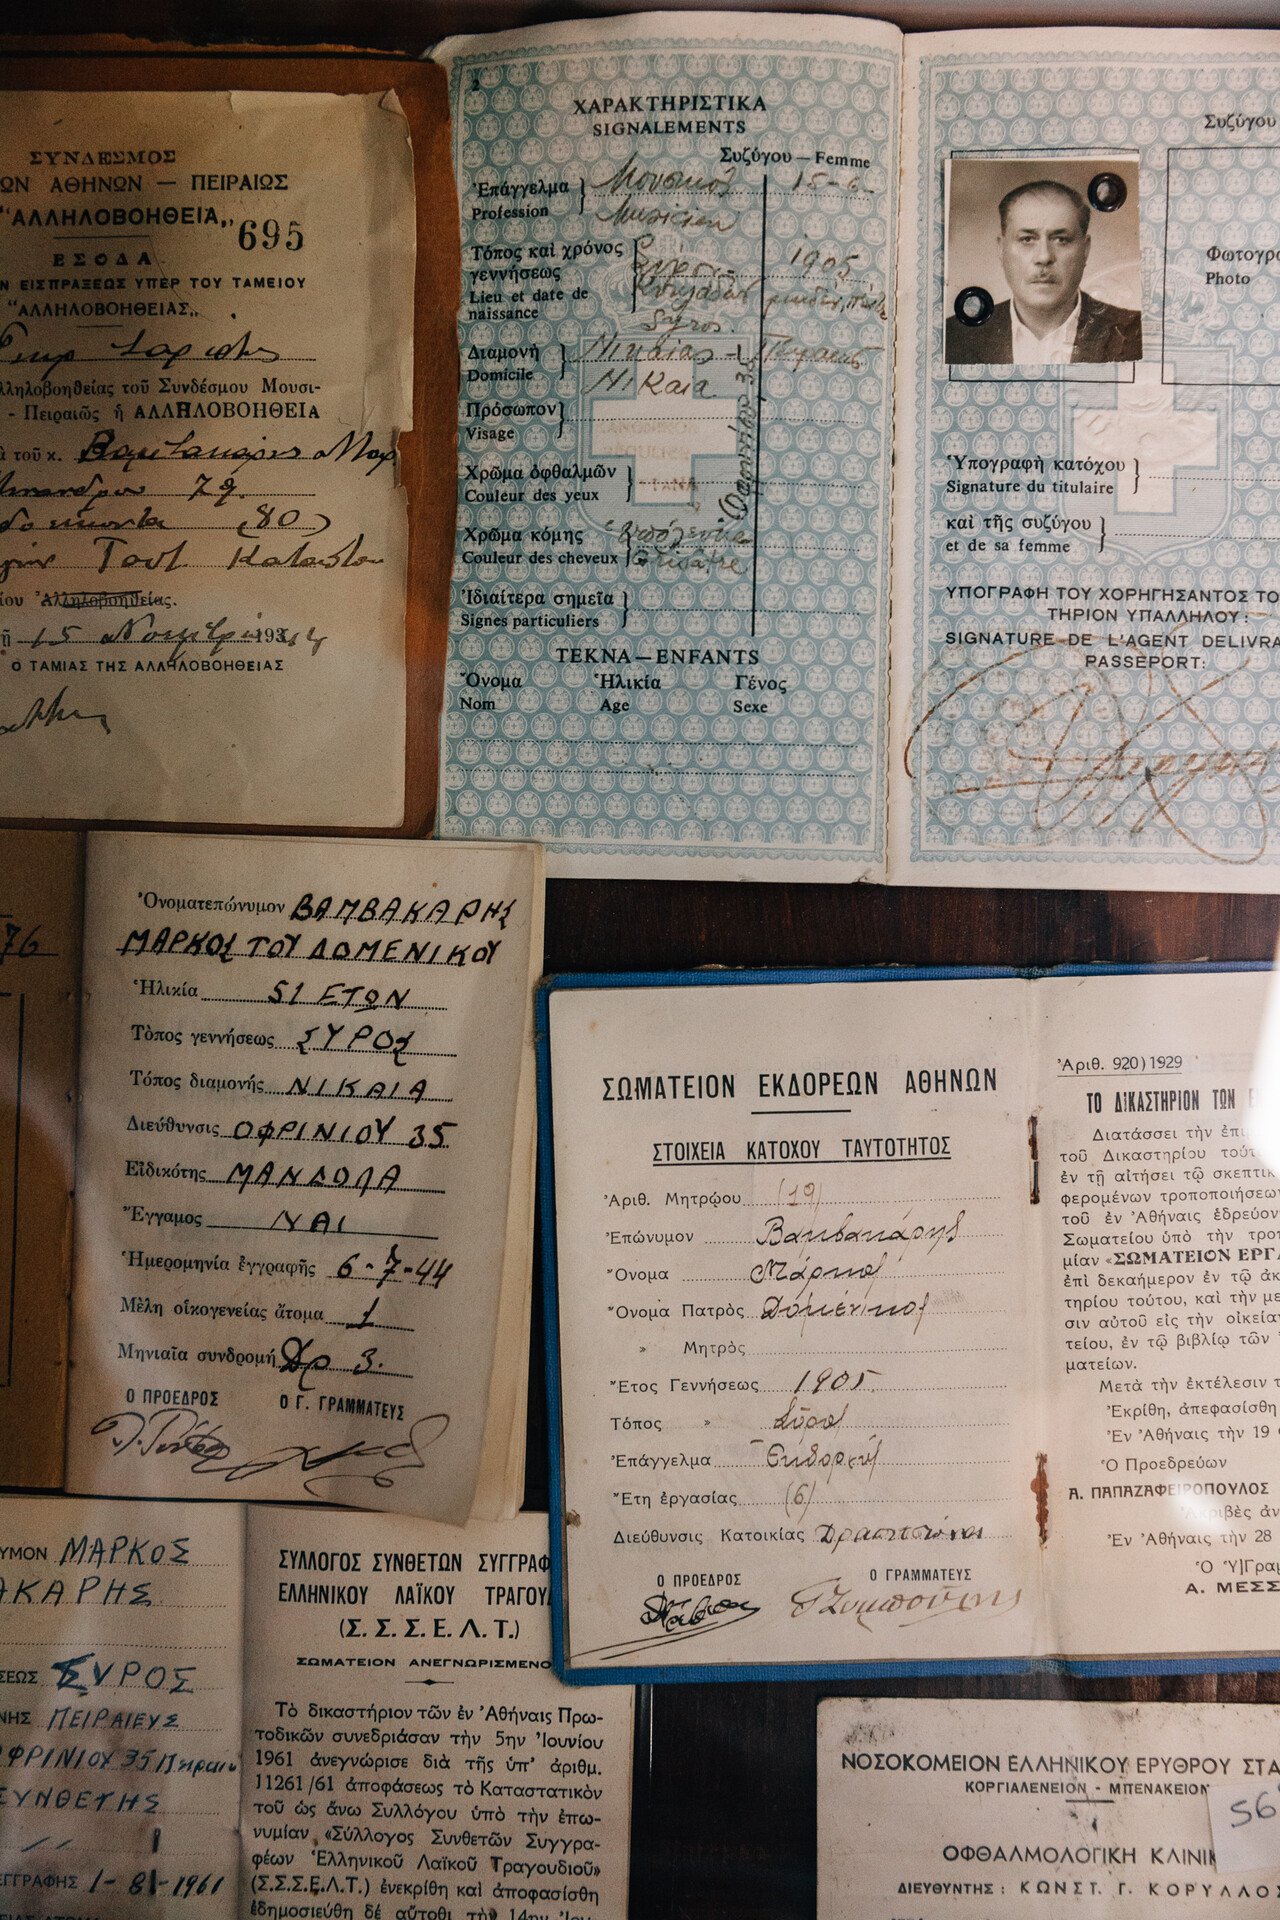 ΣΥΝΔΕΣΜΟΣ
ΩΝ ΑΘΗΝΩΝ — ΠΕΙΡΑΙΩΣ
"ΑΛΛΗΛΟΒΟΗΘΕΙΑ„
695
ΕΣΟΔΑ
Ν ΕΙΣΠΡΑΞΕΩΣ ΥΠΕΡ ΤΟΥ ΤΑΜΕΙΟΥ
"ΑΛΛΗΛΟΒΟΗΘΕΙΑΣ„
λληλοβοηθείας τοῦ Συνδέσμου Μουσι-
- Πειραιῶς ἡ ΑΛΛΗΛΟΒΟΗΘΕΙΑ
τοῦ κ. Βαμβακάρης Μαρ
79.
(80)
Ἀλληλοβοηθείας.
15 193
Ο ΤΑΜΙΑΣ ΤΗΣ ΑΛΛΗΛΟΒΟΗΘΕΙΑΣ
2
ΧΑΡΑΚΤΗΡΙΣΤΙΚΑ
SIGNALEMENTS
Συζύγου — Femme
Ἐπάγγελμα Μουσικός 15-6-
Profession Musicien
Τόπος καὶ χρόνος 1905
γεννήσεως
Lieu et date de
naissance Syros.
Διαμονὴ Νικαίας
Domicile Νικαια
Πρόσωπον
Visage
Χρῶμα ὀφθαλμῶν
Couleur des yeux
Χρῶμα κόμης
Couleur des cheveux Grisâtre
Ἰδιαίτερα σημεῖα
Signes particuliers
ΤΕΚΝΑ — ENFANTS
Ὄνομα Ἡλικία Γένος
Nom Age Sexe
Συζύγου
Φωτογρα
Photo
Ὑπογραφὴ κατόχου
Signature du titulaire
καὶ τῆς συζύγου
et de sa femme
ΥΠΟΓΡΑΦΗ ΤΟΥ ΧΟΡΗΓΗΣΑΝΤΟΣ ΤΟ
ΤΗΡΙΟΝ ΥΠΑΛΛΗΛΟΥ:
SIGNATURE DE L'AGENT DELIVRA
PASSEPORT:
76
Ὀνοματεπώνυμον ΒΑΜΒΑΚΑΡΗΣ
ΜΑΡΚΟΣ ΤΟΥ ΔΟΜΕΝΙΚΟΥ
Ἡλικία 51 ΕΤΩΝ
Τὸπος γεννήσεως ΣΥΡΟΣ
Τόπος διαμονῆς ΝΙΚΑΙΑ
Διεύθυνσις ΟΦΡΙΝΙΟΥ 35
Εἰδικότης ΜΑΝΔΟΛΑ
Ἔγγαμος ΝΑΙ
Ἡμερομηνία ἐγγραφῆς 6-7-44
Μὲλη οἰκογενείας ἄτομα 1
Μηνιαῖα συνδρομὴ Δρ 3.
Ο ΠΡΟΕΔΡΟΣ Ο Γ. ΓΡΑΜΜΑΤΕΥΣ
ΣΩΜΑΤΕΙΟΝ ΕΚΔΟΡΕΩΝ ΑΘΗΝΩΝ
ΣΤΟΙΧΕΙΑ ΚΑΤΟΧΟΥ ΤΑΥΤΟΤΗΤΟΣ
Ἀριθ. Μητρῴου (19)
Ἐπώνυμον Βαμβακάρης
Ὄνομα Μάρκος
Ὄνομα Πατρὸς Δομένικος
» Μητρὸς
Ἔτος Γεννήσεως 1905
Τόπος » Σύρος
Ἐπάγγελμα Ἐκδορεύς
Ἔτη ἐργασίας (6)
Διεύθυνσις Κατοικίας
Ο ΠΡΟΕΔΡΟΣ Ο ΓΡΑΜΜΑΤΕΥΣ
Ἀριθ. 920) 1929
ΤΟ ΔΙΚΑΣΤΗΡΙΟΝ ΤΩΝ
Διατάσσει τὴν ἐπι
τοῦ Δικαστηρίου τούτ
ἐν τῇ αἰτήσει τῷ σκεπτικ
φερομένων τροποποιήσεων
τοῦ ἐν Ἀθήναις ἑδρεύον
Σωματείου ὑπὸ τὴν τροπ
μίαν «ΣΩΜΑΤΕΙΟΝ ΕΡΓΑ
ἐπὶ δεκαήμερον ἐν τῷ ἀκ
τηρίου τούτου, καὶ τὴν με
σιν αὐτοῦ εἰς τὴν οἰκείαν
τείου, ἐν τῷ βιβλίῳ τῶν
ματείων.
Μετὰ τὴν ἐκτέλεσιν τ
Ἐκρίθη, ἀπεφασίσθη
Ἐν Ἀθήναις τὴν 19
Ὁ Προεδρεύων
Α. ΠΑΠΑΖΑΦΕΙΡΟΠΟΥΛΟΣ
Ἀκριβὲς ἀν
Ἐν Ἀθήναις τὴν 28
Ὁ Ὑ)Γραμ
Α. ΜΕΣΣ
ΥΜΟΝ ΜΑΡΚΟΣ
ΑΚΑΡΗΣ
ΣΕΩΣ ΣΥΡΟΣ
ΝΗΣ ΠΕΙΡΑΙΕΥΣ
ΟΦΡΙΝΙΟΥ 35 Πειραιώς
ΣΥΝΘΕΤΗΣ
ΕΓΓΡΑΦΗΣ 1-8-1961
ΣΥΛΛΟΓΟΣ ΣΥΝΘΕΤΩΝ ΣΥΓΓΡΑΦ
ΕΛΛΗΝΙΚΟΥ ΛΑΪΚΟΥ ΤΡΑΓΟΥΔ
(Σ.Σ.Σ.Ε.Λ.Τ.)
ΣΩΜΑΤΕΙΟΝ ΑΝΕΓΝΩΡΙΣΜΕΝΟ
Τὸ δικαστήριον τῶν ἐν Ἀθήναις Πρω-
τοδικῶν συνεδριάσαν τὴν 5ην Ἰουνίου
1961 ἀνεγνώρισε διὰ τῆς ὑπ' ἀριθμ.
11261/61 ἀποφάσεως τὸ Καταστατικὸν
τοῦ ὡς ἄνω Συλλόγου ὑπὸ τὴν ἐπω-
νυμίαν «Σύλλογος Συνθετῶν Συγγρα-
φέων Ἑλληνικοῦ Λαϊκοῦ Τραγουδιοῦ»
(Σ.Σ.Σ.Ε.Λ.Τ.) ἐνεκρίθη καὶ ἀποφασίσθη
ἐδημοσιεύθη δὲ αὐτοθι τὴν 14ην Ἰου-
ΝΟΣΟΚΟΜΕΙΟΝ ΕΛΛΗΝΙΚΟΥ ΕΡΥΘΡΟΥ ΣΤΑ
ΚΟΡΓΙΑΛΕΝΕΙΟΝ - ΜΠΕΝΑΚΕΙΟΝ
56
ΟΦΘΑΛΜΟΛΟΓΙΚΗ ΚΛΙΝΙΚ
ΔΙΕΥΘΥΝΤΗΣ : ΚΩΝΣΤ. Γ. ΚΟΡΥΛΛΟΣ